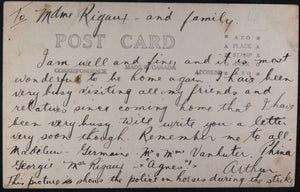 To Mdme Rigaux - and family.
POST CARD
MADE IN CANADA
CORRESPONDENCE
ADDRESS
AZO
PLACE
STAMP
I am well and fine and it is most
wonderful to be home again I have been
very busy visiting all my friends and
relatives since coming home that I have
been very busy. Will write you a letter
very soon though. Remember me to all.
Madeline - Germaine Mr & Mrs Vanhuter. China
Georges Mr Rigaux "Agnes". Arthur
This picture is shows the police on horses during the strike